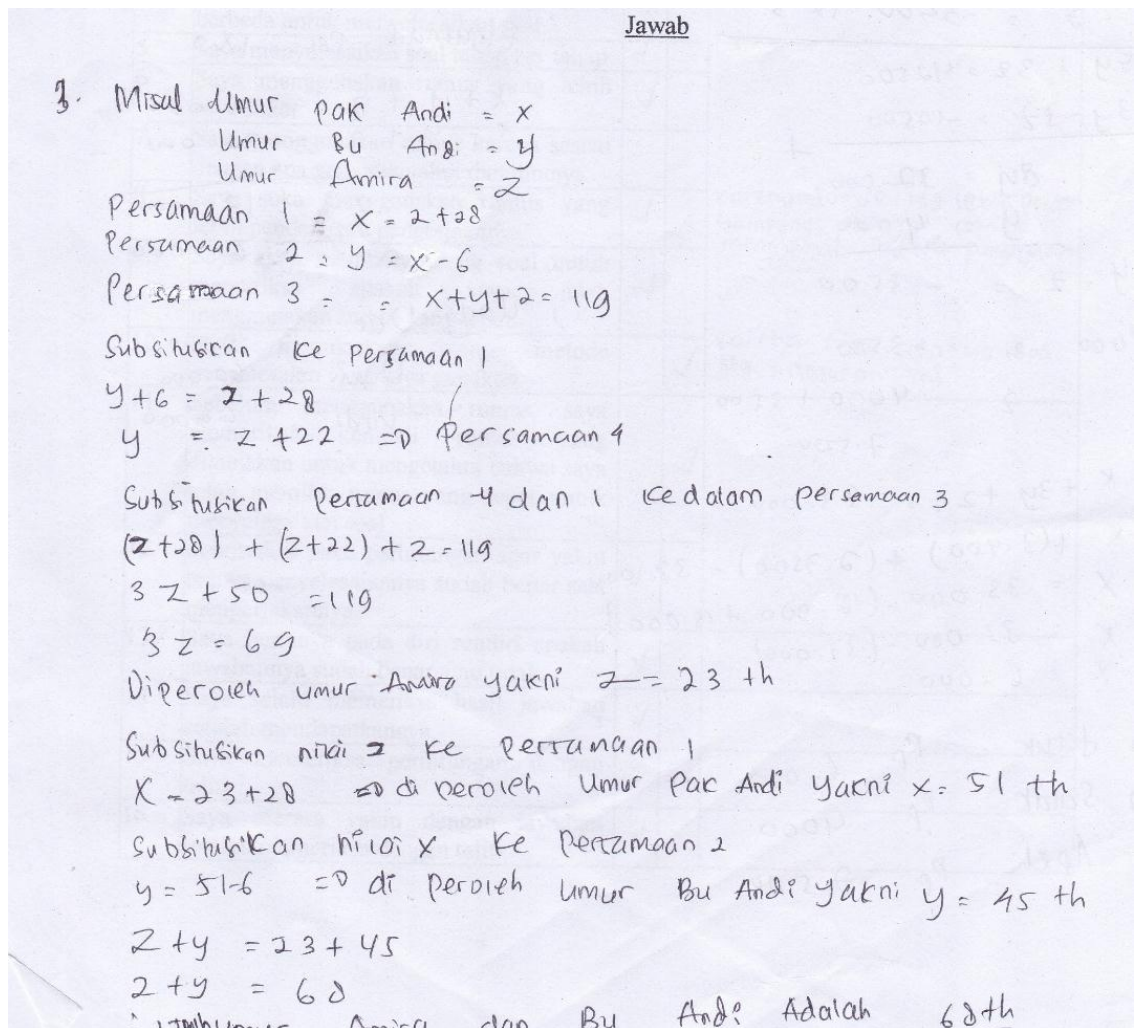 Jawab
3. Misal Umur Pak Andi = x
Umur Bu Andi = y
Umur Amira = z
Persamaan 1 = x = z + 28
Persamaan 2 = y = x - 6
Persamaan 3 = = x + y + z = 119
Subsitusikan ke persamaan 1
y + 6 = z + 28
y = z + 22 => Persamaan 4
Subsitusikan Persamaan 4 dan 1 kedalam persamaan 3
(z+28) + (z+22) + z = 119
3 z + 50 = 119
3 z = 69
Diperoleh umur Amira yakni z = 23 th
Subsitusikan nilai z ke persamaan 1
x = 23 + 28 => di peroleh Umur Pak Andi yakni x = 51 th
Subsitusikan nilai x ke Persamaan 2
y = 51-6 => di peroleh umur Bu Andi yakni y = 45 th
z + y = 23 + 45
z + y = 68
Amira dan Bu Andi Adalah 68 th